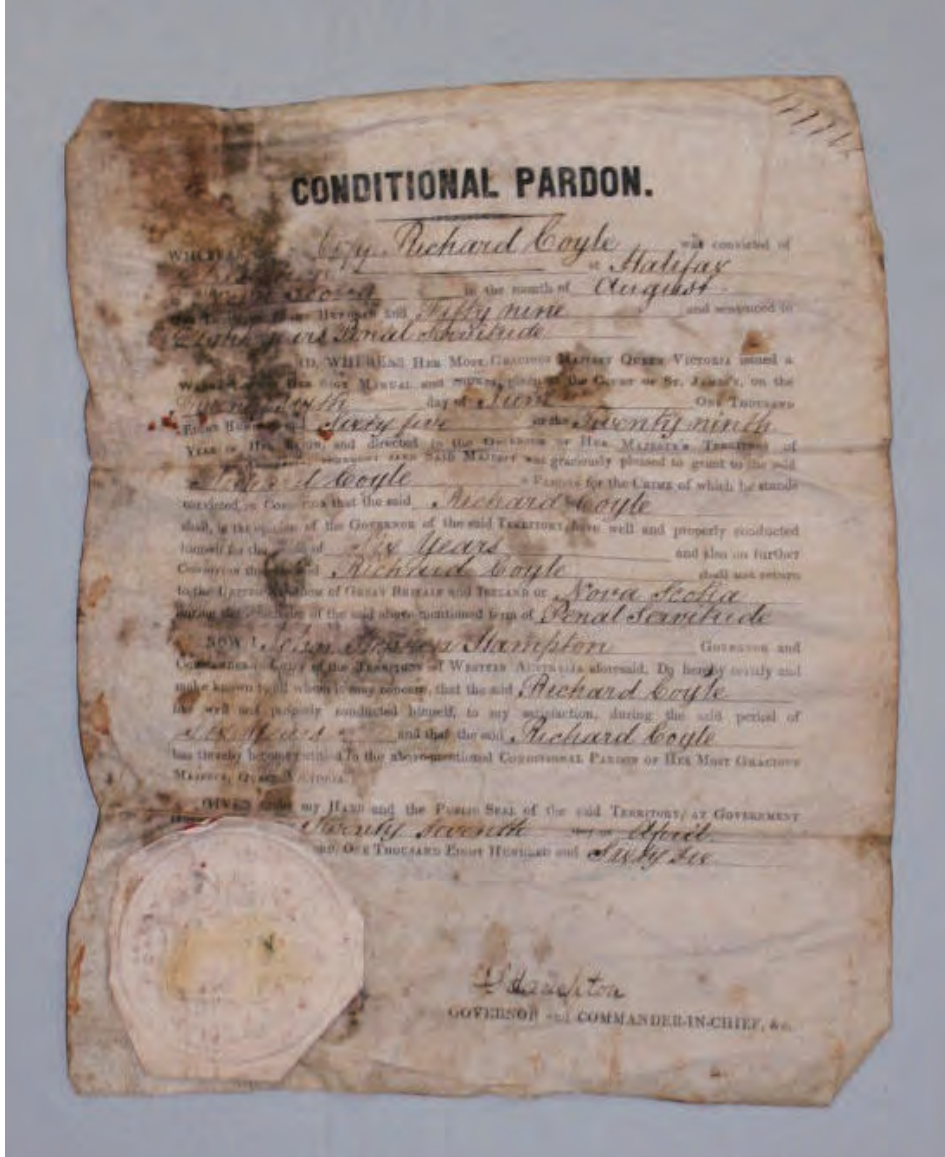 CONDITIONAL PARDON.
WHEREAS Copy Richard Coyle was convicted of
at Halifax
Scotia in the month of August
Hundred and Fifty nine and sentenced to
Eight years Penal Servitude
WHEREAS Her Most Gracious Majesty Queen Victoria issued a
Her Sign Manual and given at the Court of St. James's, on the
day of June One Thousand
Eight Sixty five in the Twenty ninth
Year of Her Reign, and directed to the Governor of Her Majesty's Territory of
said Majesty was graciously pleased to grant to the said
Coyle a Pardon for the Crime of which he stands
convicted, on Condition that the said Richard Coyle
shall, in the opinion of the Governor of the said Territory, have well and properly conducted
himself for the of Six Years and also on further
Condition that Richard Coyle shall not return
to the United Kingdom of Great Britain and Ireland or Nova Scotia
of the said above-mentioned term of Penal Servitude
NOW I John Hampton Governor and
of the Territory of Western Australia aforesaid. Do hereby certify and
make known to all whom it may concern, that the said Richard Coyle
has well and properly conducted himself, to my satisfaction, during the said period of
Six Years and that the said Richard Coyle
has thereby become to the above-mentioned Conditional Pardon of Her Most Gracious
Majesty, Queen Victoria.
GIVEN under my Hand and the Public Seal of the said Territory, at Government
Twenty Seventh day of April
One Thousand Eight Hundred and Sixty six
Hampton
GOVERNOR and COMMANDER-IN-CHIEF, &c.